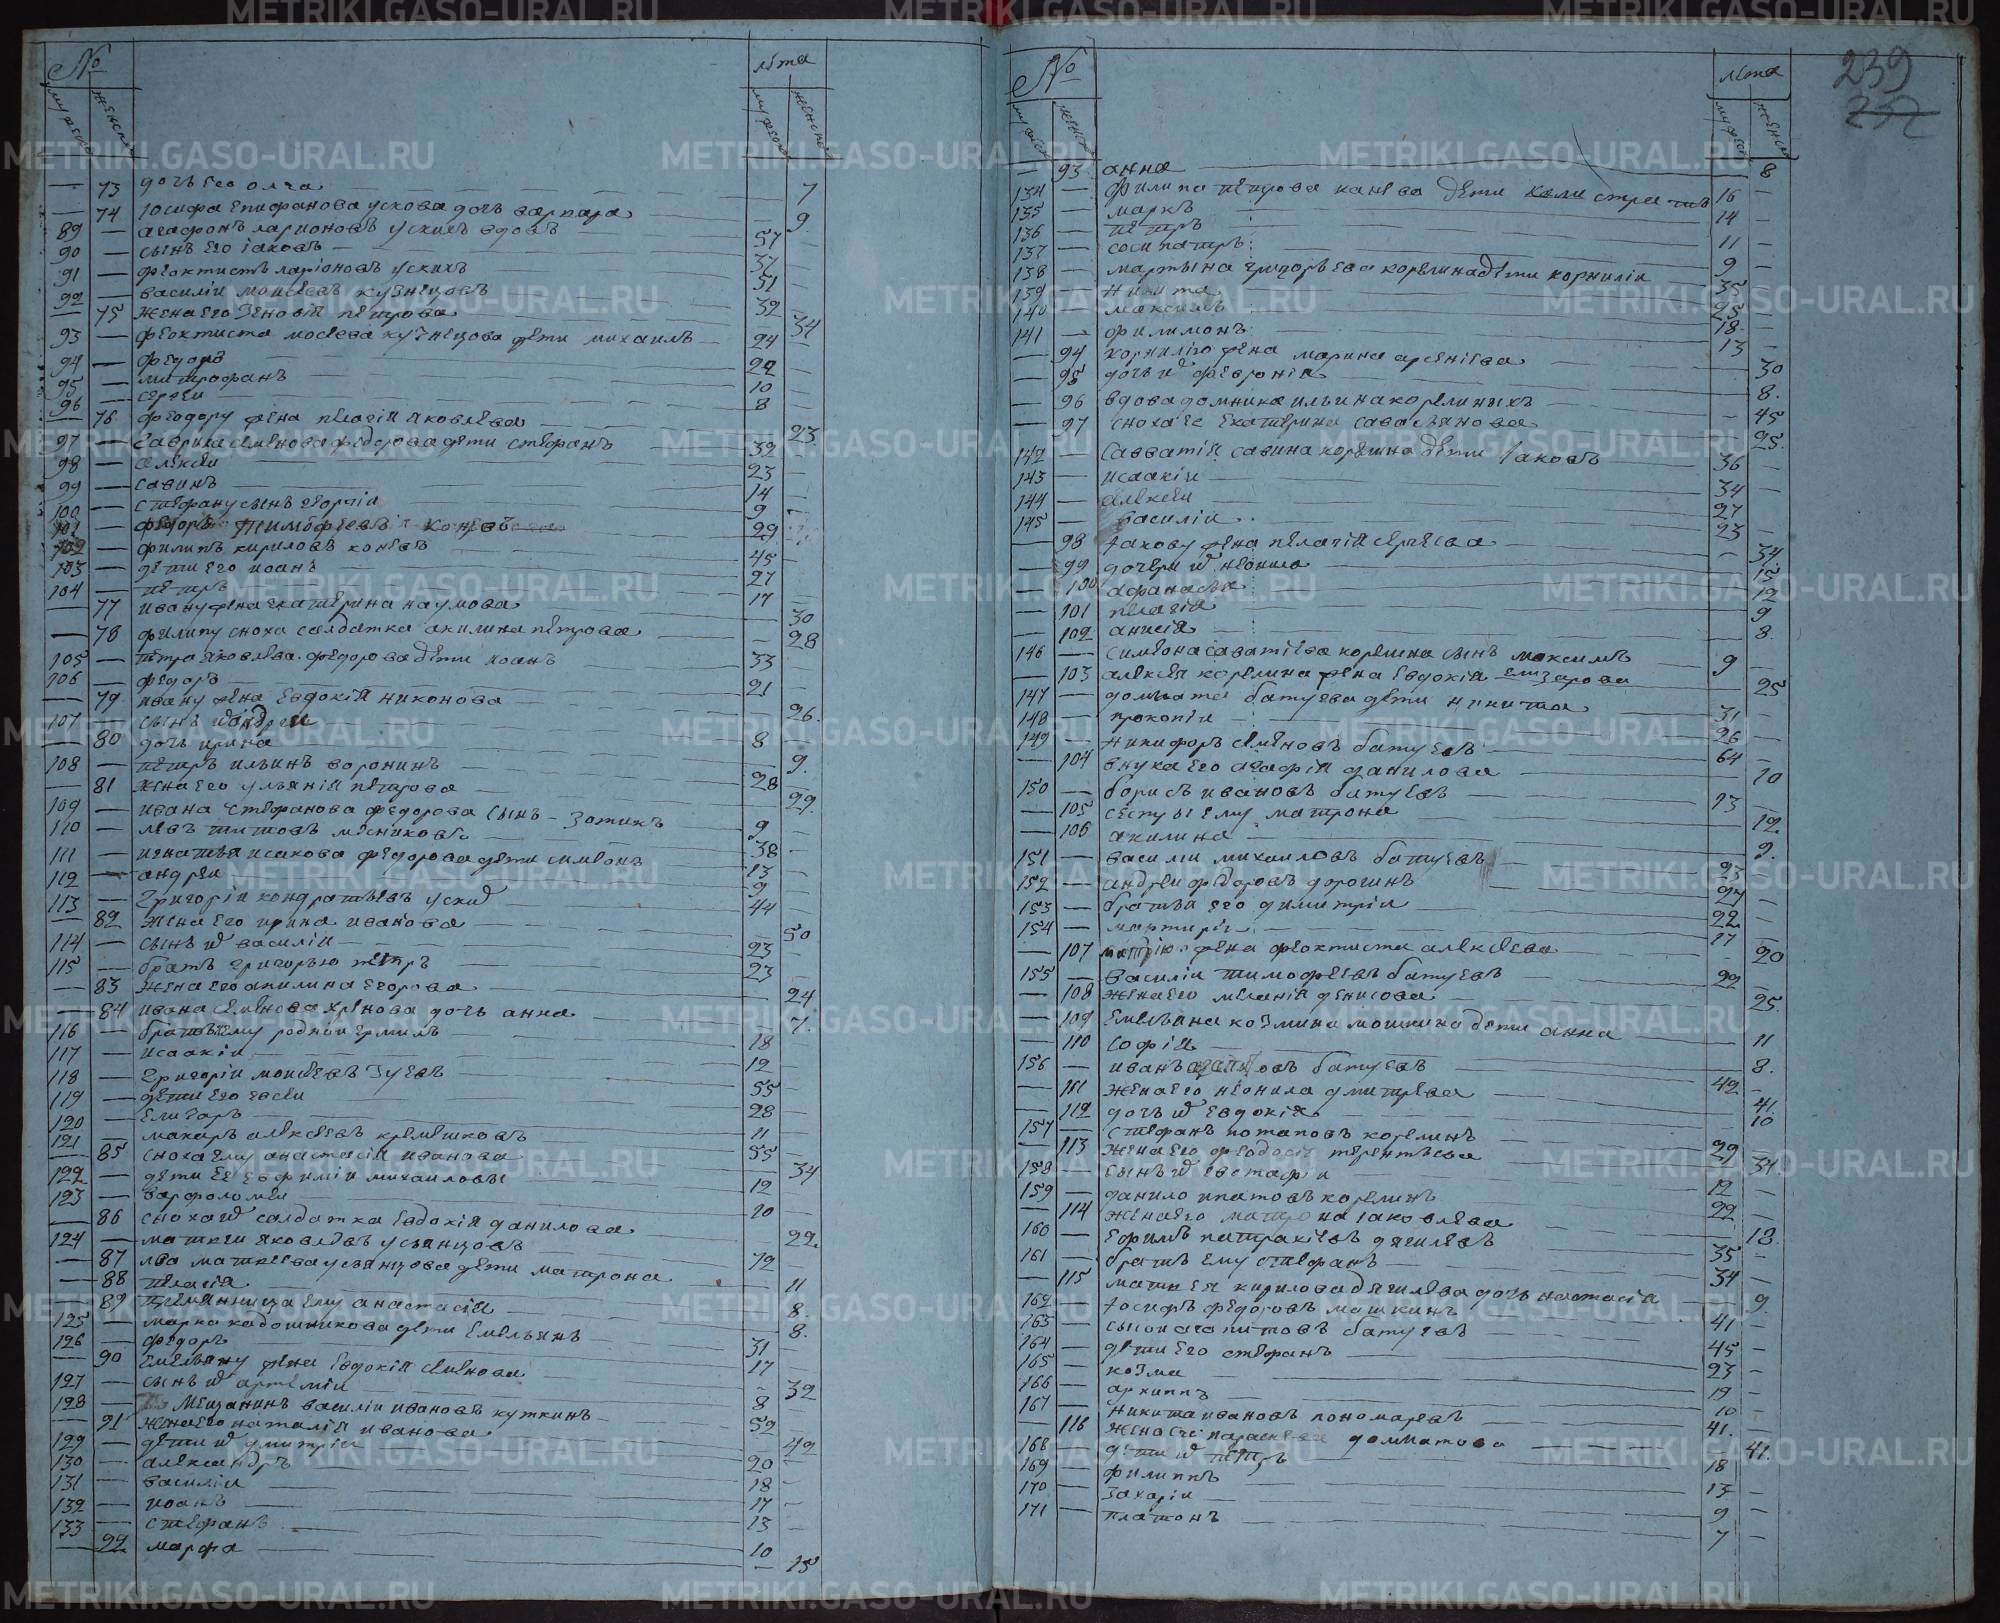 № лѣта
73 дочь его олга 7
74 Iосифа епифанова ускова дочь варвара 9
89 агафонъ ларионовъ ускихъ вдовъ 57
90 сынъ его iаковъ 37
91 феоктистъ ларiоновъ ускихъ 51
92 василии моисеевъ кузнецовъ 32
75 жена его Зеновiя петрова 34
93 феоктиста мосеева кузнецова дети михаилъ 24
94 федоръ 22
95 митрофанъ 10
96 сергеи 8
76 феодору жена пелагiя яковлева 23
97 Гаврила семенова федорова дети стефанъ 32
98 алексеи 23
99 савинъ 14
100 стефану сынъ георгiи 9
101 федоръ тимофеевъ коневъ 29
102 филипъ кириловъ коневъ 45
103 дети его иоанъ 27
104 петръ 17
77 ивану жена екатерина наумова 30
78 филипу сноха салдатка акилина петрова 28
105 петра яковлева федорова дѣти иоанъ 33
106 федоръ 21
79 ивану жена евдокiя никонова 26
107 сынъ андреи 8
80 дочь ирина 9
108 петръ ильинъ воронинъ 28
81 жена его ульянiя петрова 29
109 ивана стефанова федорова сынъ Зотикъ 9
110 левъ титовъ мясниковъ 38
111 игнатья исакова федорова дети симеонъ 13
112 андреи 9
113 Григорiи кондратьевъ ускихъ 44
82 жена его ирина иванова 50
114 сынъ василiи 23
115 братъ григорью петръ 23
83 жена его акилина егорова 24
84 ивана семенова хренова дочь анна 7
116 братья ему родныи ермилъ 18
117 исаакiи 12
118 Григорiи моисеевъ Зуевъ 55
119 дети его евсеи 28
120 Елизаръ 11
121 макаръ алексеевъ кремешковъ 55
85 сноха ему анастасiя иванова 34
122 дети ее евфимiи михаиловы 12
123 варфоломеи 10
86 сноха салдатка евдокiя данилова 22
124 матвеи яковлевъ усьянцовъ 79
87 лва матвеева усьянцова дети матрона 11
88 пелагiя 8
89 племянница ему анастасiя 8
125 марка кадошникова дети Емельянъ 31
126 федоръ 17
90 Емельяну жена Евдокiя семенова 32
127 сынъ артемiи 8
128 Мещанинъ василiи ивановъ куткинъ 52
91 жена его наталiя иванова 42
129 дети дмитрiи 20
130 александръ 18
131 василiи 17
132 иоанъ 13
133 стефанъ 10
92 марфа 15
№ лѣта 239
93 анна 8
134 Филипа петрова канева дети калистратъ 16
135 маркъ 14
136 петръ 11
137 сосипатръ 9
138 мартына григорьева корелина дети корнилiи 35
139 Никита 25
140 максимъ 18
141 филимонъ 13
94 корнилiю жена марина арсенiева 30
95 дочь февронiя 8
96 вдова домника ильина корелиныхъ 45
97 сноха ее екатерина савасьянова 25
142 Савватiя савина корелина дети Iаковъ 36
143 исаакiи 34
144 алексеи 27
145 василiи 23
98 Iакову жена пелагiя сергеева 34
99 дочери неонила 15
100 афанасья 12
101 пелагiя 9
102 анисiя 8
146 симеона саватiева корелина сынъ максимъ 9
103 алексея корелина жена евдокiя елизарова 25
147 домната батуева дети никита 31
148 прокопiи 26
149 Никифоръ семеновъ батуевъ 64
104 внука его агафiя данилова 10
150 борисъ ивановъ батуевъ 23
105 сестры ему матрона 12
106 акилина 9
151 василiи михаиловъ батуевъ 23
152 андреи федоровъ дорогинъ 27
153 братья его димитрiи 22
154 мартирiи 17
107 жена феоктиста алексеева 20
155 василiи тимофеевъ батуевъ 22
108 жена его меланiя денисова 25
109 Емельяна козмина мошкина дети анна 11
110 софiя 8
156 иванъ батуевъ 42
111 жена его неонила дмитрева 41
112 дочь евдокiя 10
157 стефанъ потаповъ корелинъ 29
113 жена его феодосiя терентьева 34
158 сынъ евстафiи 12
159 данило ипатовъ корелинъ 22
114 жена его матрона iаковлева 18
160 Ефимъ патракiевъ дягилевъ 35
161 братъ ему стефанъ 34
115 матвея кирилова дягилева дочь настасiя 9
162 Iосифъ федоровъ машкинъ 41
163 сысой агапитовъ батуевъ 45
164 дети его стефанъ 23
165 козма 19
166 архиппъ 10
167 Никита ивановъ пономаревъ 41
116 жена его параскева домнатова 41
168 дети петръ 18
169 филиппъ 13
170 Захарiи 9
171 платонъ 7